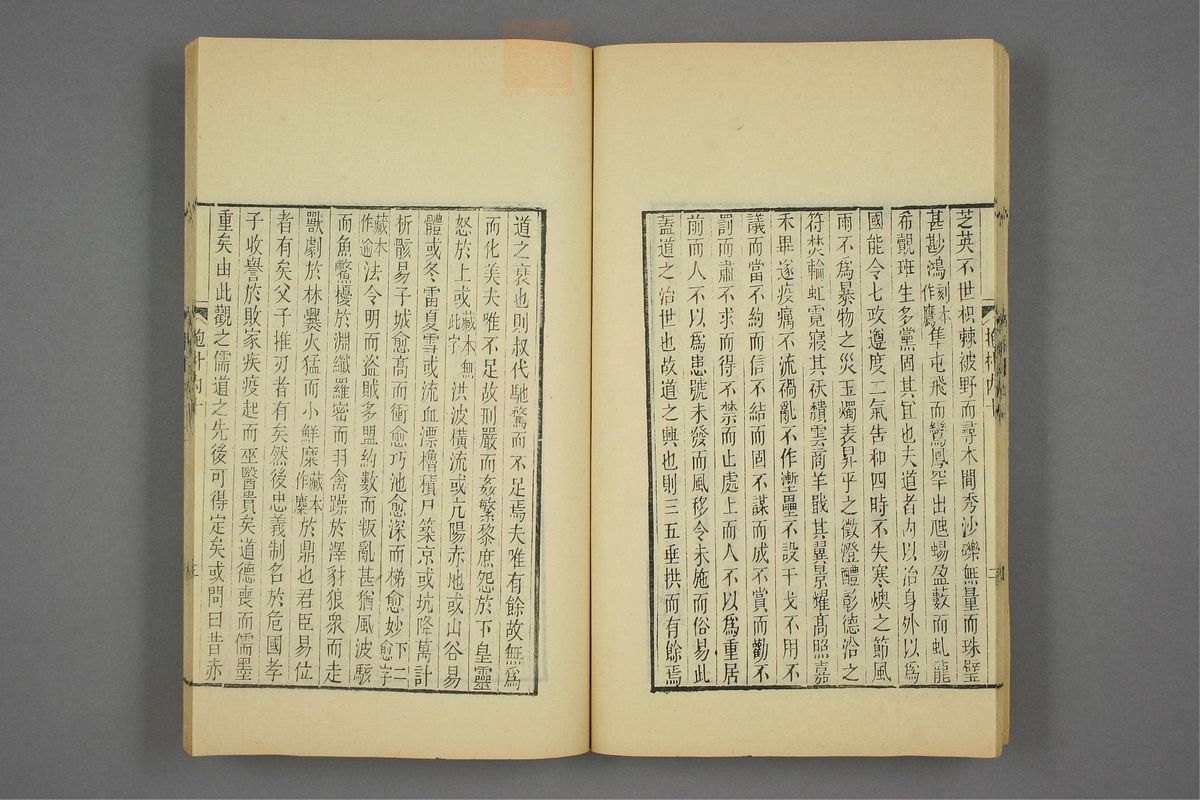 芝英不世枳棘被野而尋木間秀沙礫無量而珠璧
甚尠鴻刻本作鷹隼屯飛而鸞鳳罕出虺蜴盈藪而虬龍
希覿班生多黨固其宜也夫道者內以治身外以爲
國能令七政遵度二氣告和四時不失寒燠之節風
雨不爲暴物之災玉燭表昇平之徵澄醴彰德洽之
符焚輪虹霓寢其祅穨雲商羊戢其翼景耀高照嘉
禾畢遂疫癘不流禍亂不作塹壘不設干戈不用不
議而當不約而信不結而固不謀而成不賞而勸不
罰而肅不求而得不禁而止處上而人不以爲重居
前而人不以爲患號未發而風移令未施而俗易此
蓋道之治世也故道之興也則三五垂拱而有餘焉
道之衰也則叔代馳騖而不足焉夫唯有餘故無爲
而化美夫唯不足故刑嚴而姦繁黎庶怨於下皇靈
怒於上或藏本無此字洪波橫流或亢陽赤地或山谷易
體或冬雷夏雪或流血漂櫓積尸築京或坑降萬計
析骸易子城愈高而衝愈巧池愈深而梯愈妙下二愈字
藏本作逾法令明而盜賊多盟約數而叛亂甚猶風波駭
而魚鱉擾於淵纖羅密而羽禽躁於澤豺狼衆而走
獸劇於林爨火猛而小鮮糜藏本作麋於鼎也君臣易位
者有矣父子推刃者有矣然後忠義制名於危國孝
子收譽於敗家疾疫起而巫醫貴矣道德喪而儒墨
重矣由此觀之儒道之先後可得定矣或問曰昔赤
抱朴內十
三